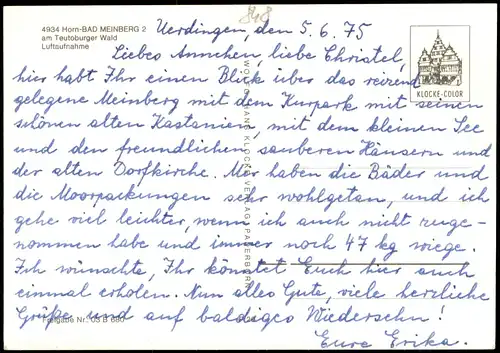 4934 Horn-BAD MEINBERG 2
am Teutoburger Wald
Luftaufnahme
848
Uerdingen, den 5.6.75
KLOCKE-COLOR
Liebes Annchen, liebe Christel,
hier habt Ihr einen Blick über das reizend
gelegene Meinberg mit dem Kurpark mit seinen
schönen alten Kastanien, mit dem kleinen See
und den freundlichen sauberen Häusern und
der alten Dorfkirche. Mir haben die Bäder und
die Moorpackungen sehr wohlgetan, und ich
gehe viel leichter, wenn ich auch nicht zuge-
nommen habe und immer noch 47 kg wiege.
Ich wünschte, Ihr könntet Euch hier auch
einmal erholen. Nun alles Gute, viele herzliche
Grüße und auf baldiges Wiedersehn!
Eure Erika.
Freigabe Nr. 03 B 680
VERLAG PADERBORN